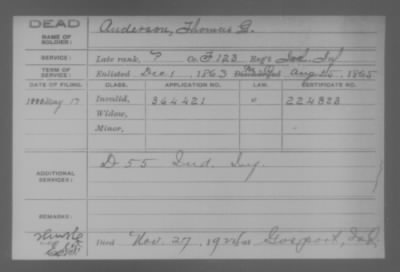 DEAD
NAME OF SOLDIER: Anderson, Thomas G.
SERVICE: Late rank, ? Co. F 123 Reg't Ind. Inf
TERM OF SERVICE: Enlisted Dec. 1, 1863 Discharged Aug. 25, 1865
DATE OF FILING. CLASS. APPLICATION NO. LAW. CERTIFICATE NO.
May 17 Invalid, 364421 " 224323
Widow,
Minor,
ADDITIONAL SERVICES: D 55 Ind. Inf.
REMARKS:
Died Nov. 27, 1924 at Gosport, Ind.